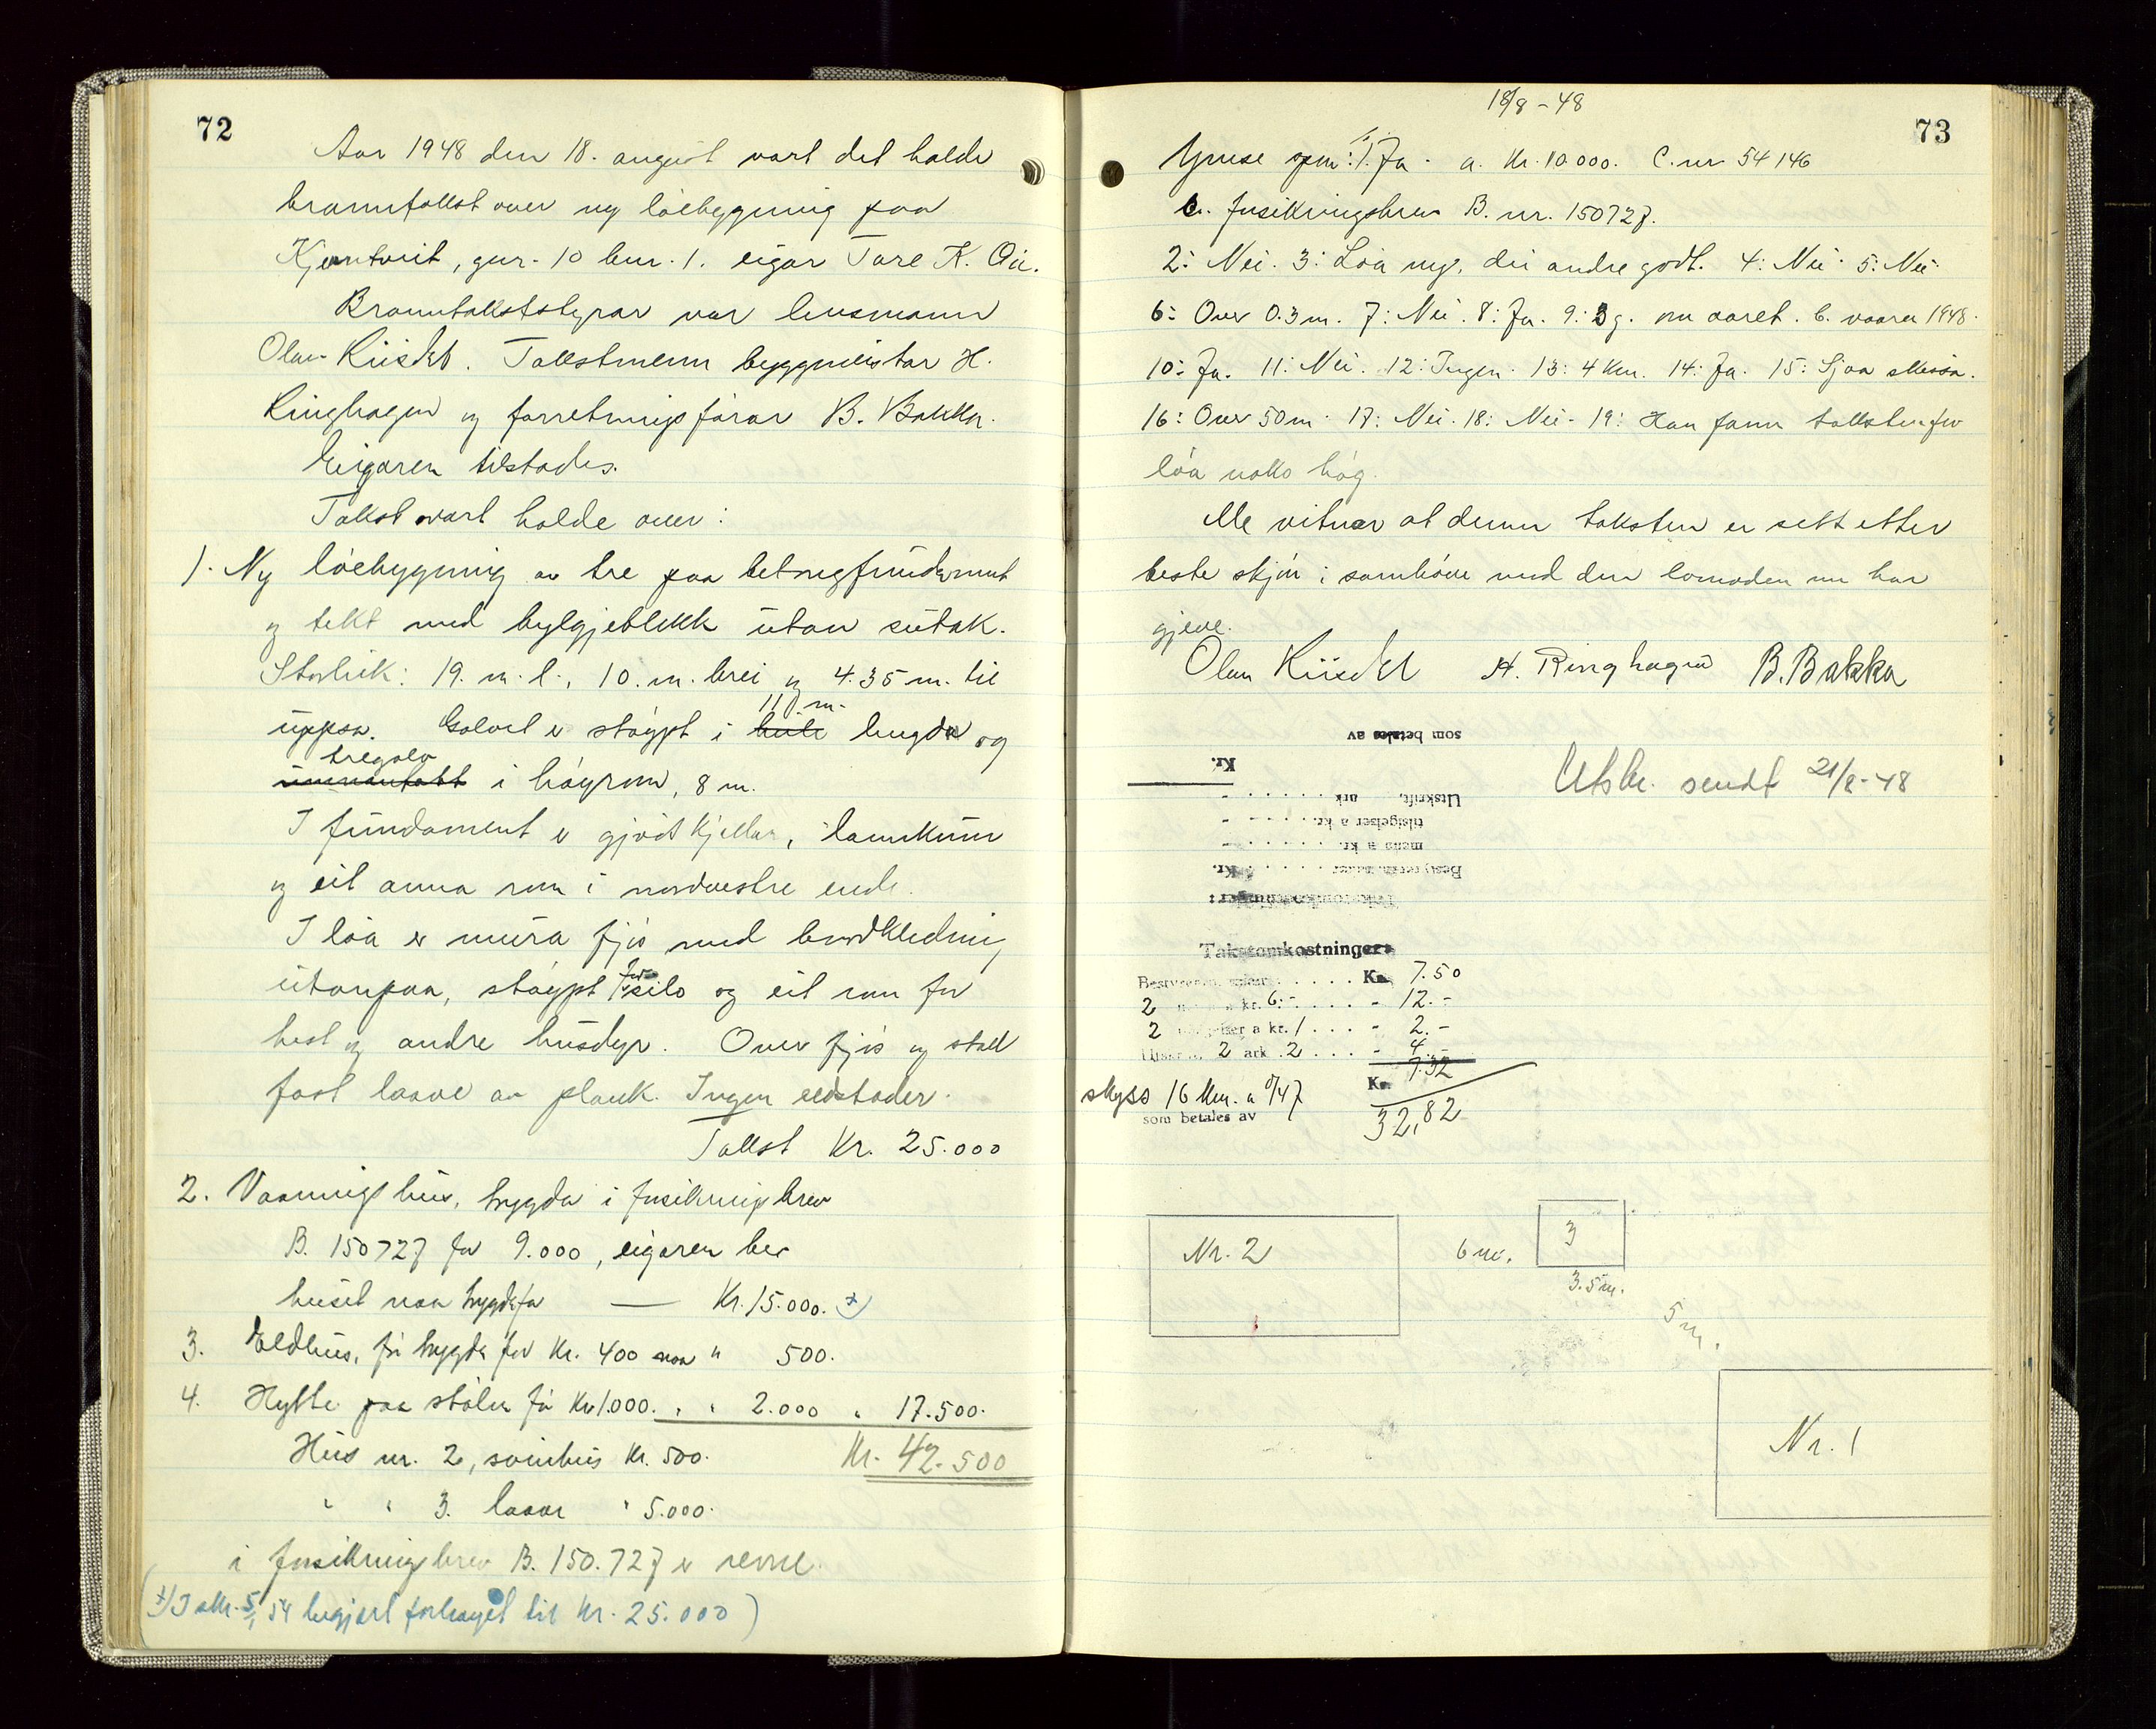 72
Aar 1948 den 18. august vart det halde
branntakst over ny löebygning paa
Kjerntveit, gnr. 10 bnr. 1. eigar Tore K. Öie.
Branntakststyrar var lensmann
Olav Riisdet. Takstmenn byggmeistar H.
Ringhagen og forretningsförar B. Bakka.
Eigaren tilstades.
Takst vart halde over:
1. Ny löebygning av tre paa betongfundament
og tekt med bylgjeblekk utan sutak.
Storleik: 19. m. l., 10. m. brei og 4.35 m. til
11 m.
uppsa. Golvet er stöypt i heile lengda og
tregolv
i högrom, 8 m.
I fundament er gjödkjellar, lannkum
og eit anna rom i nordvestre ende.
I löa er mura fjös med bordkledning
utanpaa, stöypt for silo og eit rom for
hest og andre husdyr. Over fjös og stall
fast laave av plank. Ingen eldstader.
Takst Kr. 25.000
2. Vaaningshus, trygda i forsikringsbrev
B. 150727 for 9.000, eigaren ber
huset naa trygda for — Kr. 15.000. x)
3. Eldhus, för trygda for Kr. 400 naa " 500.
4. Hytte paa stölen för Kr 1.000. " " 2.000 " 17.500.
Hus nr. 2, svinhus Kr. 500. Kr. 42.500
" " 3. laave " 5.000.
i forsikringsbrev B. 150.727 er revne.
(x) I skr. 5/1 54 begjært forhøyet til Kr. 25.000)
18/8 - 48
73
Ymse spm: 1. Ja. a. Kr. 10.000. C. nr 54146
b. Forsikringsbrev B. nr. 150727.
2: Nei. 3: Löa ny, dei andre godt. 4: Nei. 5: Nei.
6: Over 0.3 m. 7: Nei. 8: Ja. 9: 3 g. om aaret. b. vaaren 1948.
10: Ja. 11: Nei. 12: Ingen. 13: 4 km. 14: Ja. 15: Sjaa skissa.
16: Over 50 m. 17: Nei. 18: Nei. 19: Han fann taksten for
löa noko hög.
Me vitnar at denne taksten er sett etter
beste skjön i samhöve med den lovnaden me har
gjeve.
Olav Riisdet H. Ringhagen B. Bakka
som betales av
Kr.
Utskrift, ark
tilsigelser a kr.
mens a kr.
Bestyrerens salær Kr.
Takstomkostninger:
Utskr. sendt 21/8-48
Takstomkostninger:
Bestyrerens salær Kr. 7.50
2 a kr. 6.- - 12.-
2 tilsigelser a kr. 1 - 2.-
Utskrift 2 ark 2 - 4.-
7.52
skyss 16 km. a 0/47 Kr.
som betales av 32,82
Nr. 2
6 m.
3
3.5 m.
5 m.
Nr. 1